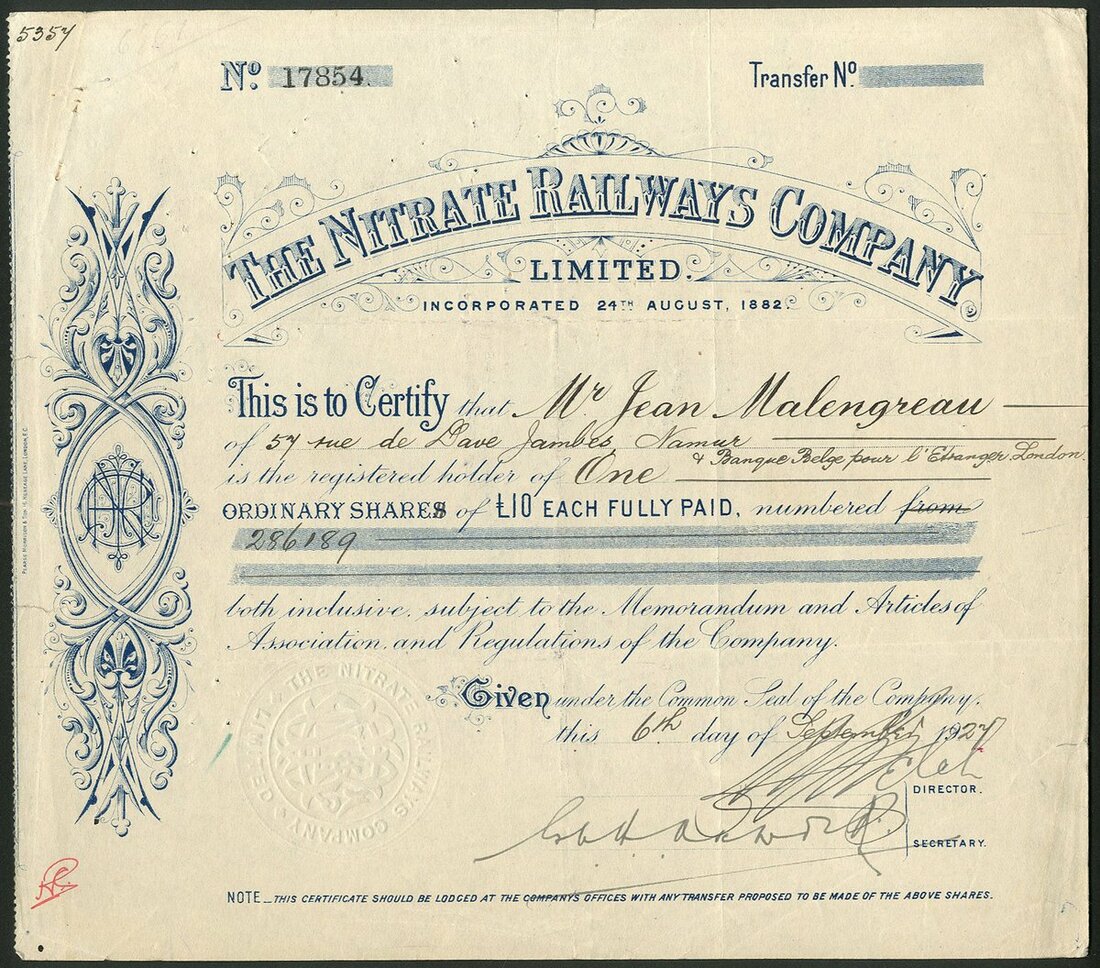 5357
Nº 17854
Transfer Nº
THE NITRATE RAILWAYS COMPANY
LIMITED.
INCORPORATED 24TH AUGUST, 1882.
This is to Certify that Mr Jean Malengreau
of 57 rue de Dave Jambes Namur
& Banque Belge pour l'Etranger London
is the registered holder of One
ORDINARY SHARES of £10 EACH FULLY PAID, numbered from
286189
both inclusive, subject to the Memorandum and Articles of
Association and Regulations of the Company.
Given under the Common Seal of the Company,
this 6th day of September 1927
DIRECTOR.
SECRETARY.
NOTE_THIS CERTIFICATE SHOULD BE LODGED AT THE COMPANYS OFFICES WITH ANY TRANSFER PROPOSED TO BE MADE OF THE ABOVE SHARES.
THE NITRATE RAILWAYS COMPANY LIMITED
LONDON, E.C.